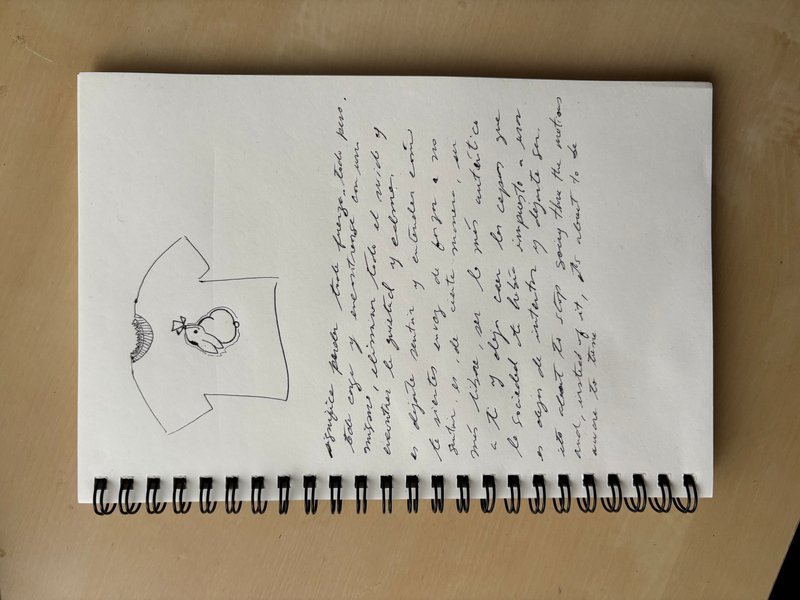 significa perder toda fuerza, todo peso.
toda carga y encontrarse con uno
mismo, eliminar todo el ruido y
encontrar la quietud y calma.
es dejarte sentir y entender como
te sientes en vez de forzar a no
sentir, es, de cierta manera, ser
más libre ser lo más auténtico
a ti y dejar caer las capas que
la sociedad te había impuesto a usar
es dejar de intentar y dejarte ser.
its about to stop going thru the motions
and, instead of it, its about to be
aware to tune